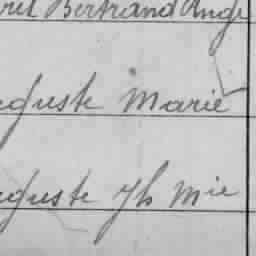 Bertrand Ange
guste Marie
guste Jh Mie